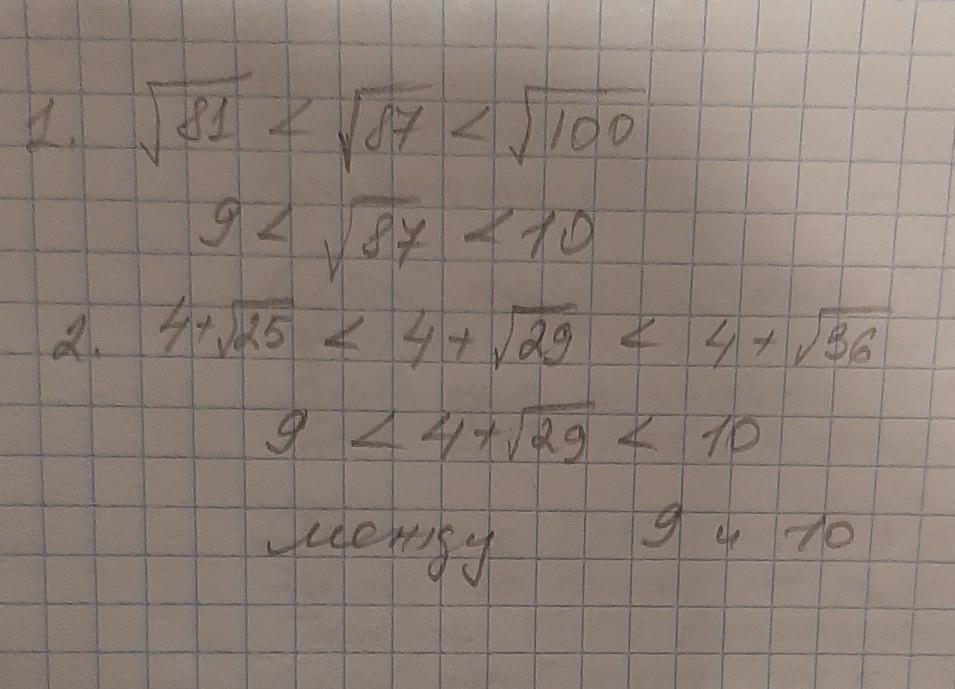 1. √81 < √87 < √100
9 < √87 < 10
2. 4+√25 < 4+√29 < 4+√36
9 < 4+√29 < 10
между 9 и 10